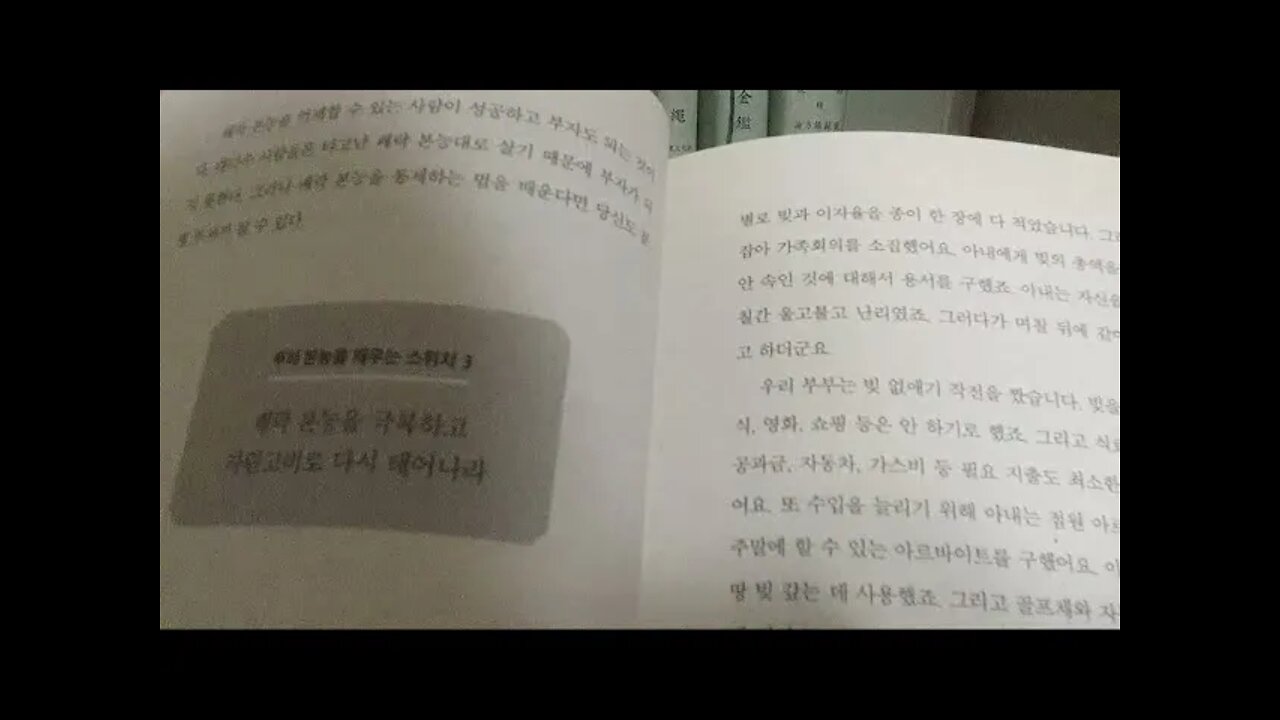 쾌락 본능을 억제할 수 있는 사람이 성공하고 부자도 되는 것이
다. 대다수 사람들은 타고난 쾌락 본능대로 살기 때문에 부자가 되
지 못한다. 그러나 쾌락 본능을 통제하는 법을 배운다면 당신도
부자가 될 수 있다.
부의 본능을 깨우는 스위치 3
쾌락 본능을 극복하고
자린고비로 다시 태어나라
별로 빚과 이자율을 종이 한 장에 다 적었습니다.
잡아 가족회의를 소집했어요. 아내에게 빚의 총액을
안 속인 것에 대해서 용서를 구했죠. 아내는 자신을
칠간 울고불고 난리였죠. 그러다가 며칠 뒤에
고 하더군요.
우리 부부는 빚 없애기 작전을 짰습니다. 빚을
식, 영화, 쇼핑 등은 안 하기로 했죠. 그리고
공과금, 자동차, 가스비 등 필요 지출도 최소한
어요. 또 수입을 늘리기 위해 아내는 점원
주말에 할 수 있는 아르바이트를 구했어요.
땅 빚 갚는 데 사용했죠. 그리고 골프채와